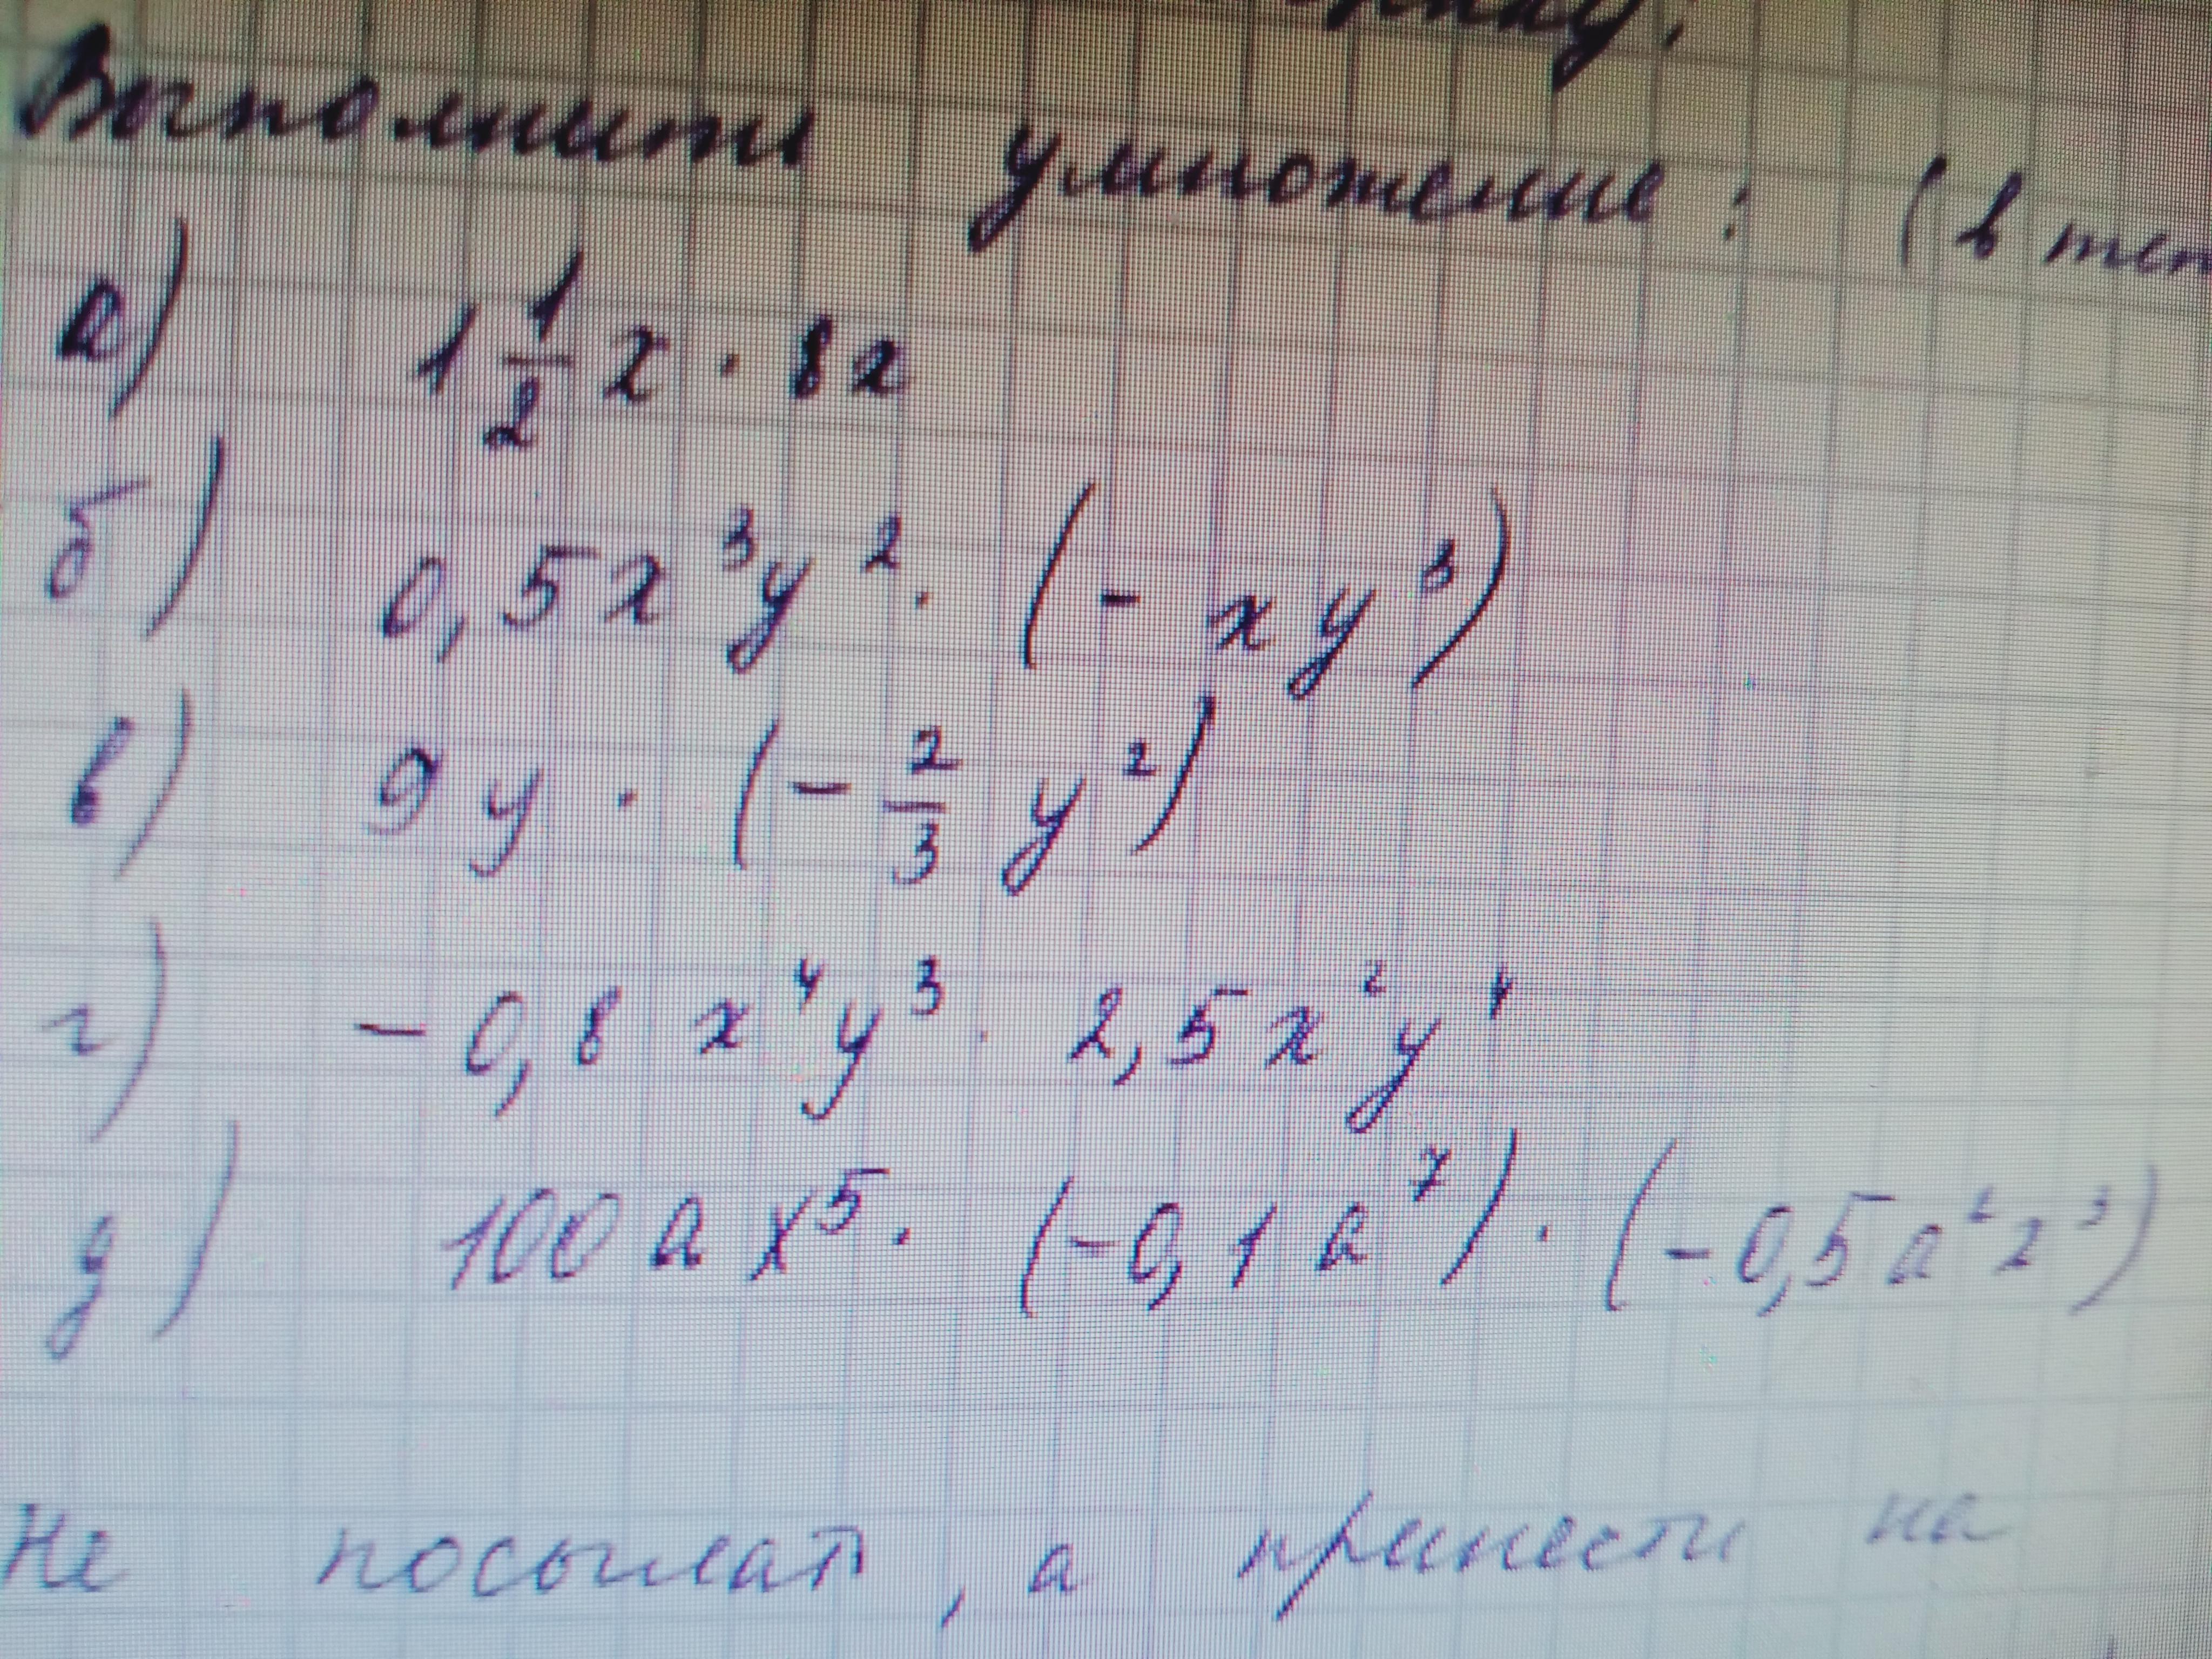 Выполнить умножение: (в
а) 1 1/2 x · 8x
б) 0,5x³y² · (- xy³)
в) 9y · (- 2/3 y²)
г) - 0,8 x⁴y³ · 2,5x²y⁴
д) 100ax⁵ · (-0,1a⁷) · (-0,5a²x³)
Не посылать, а принести на